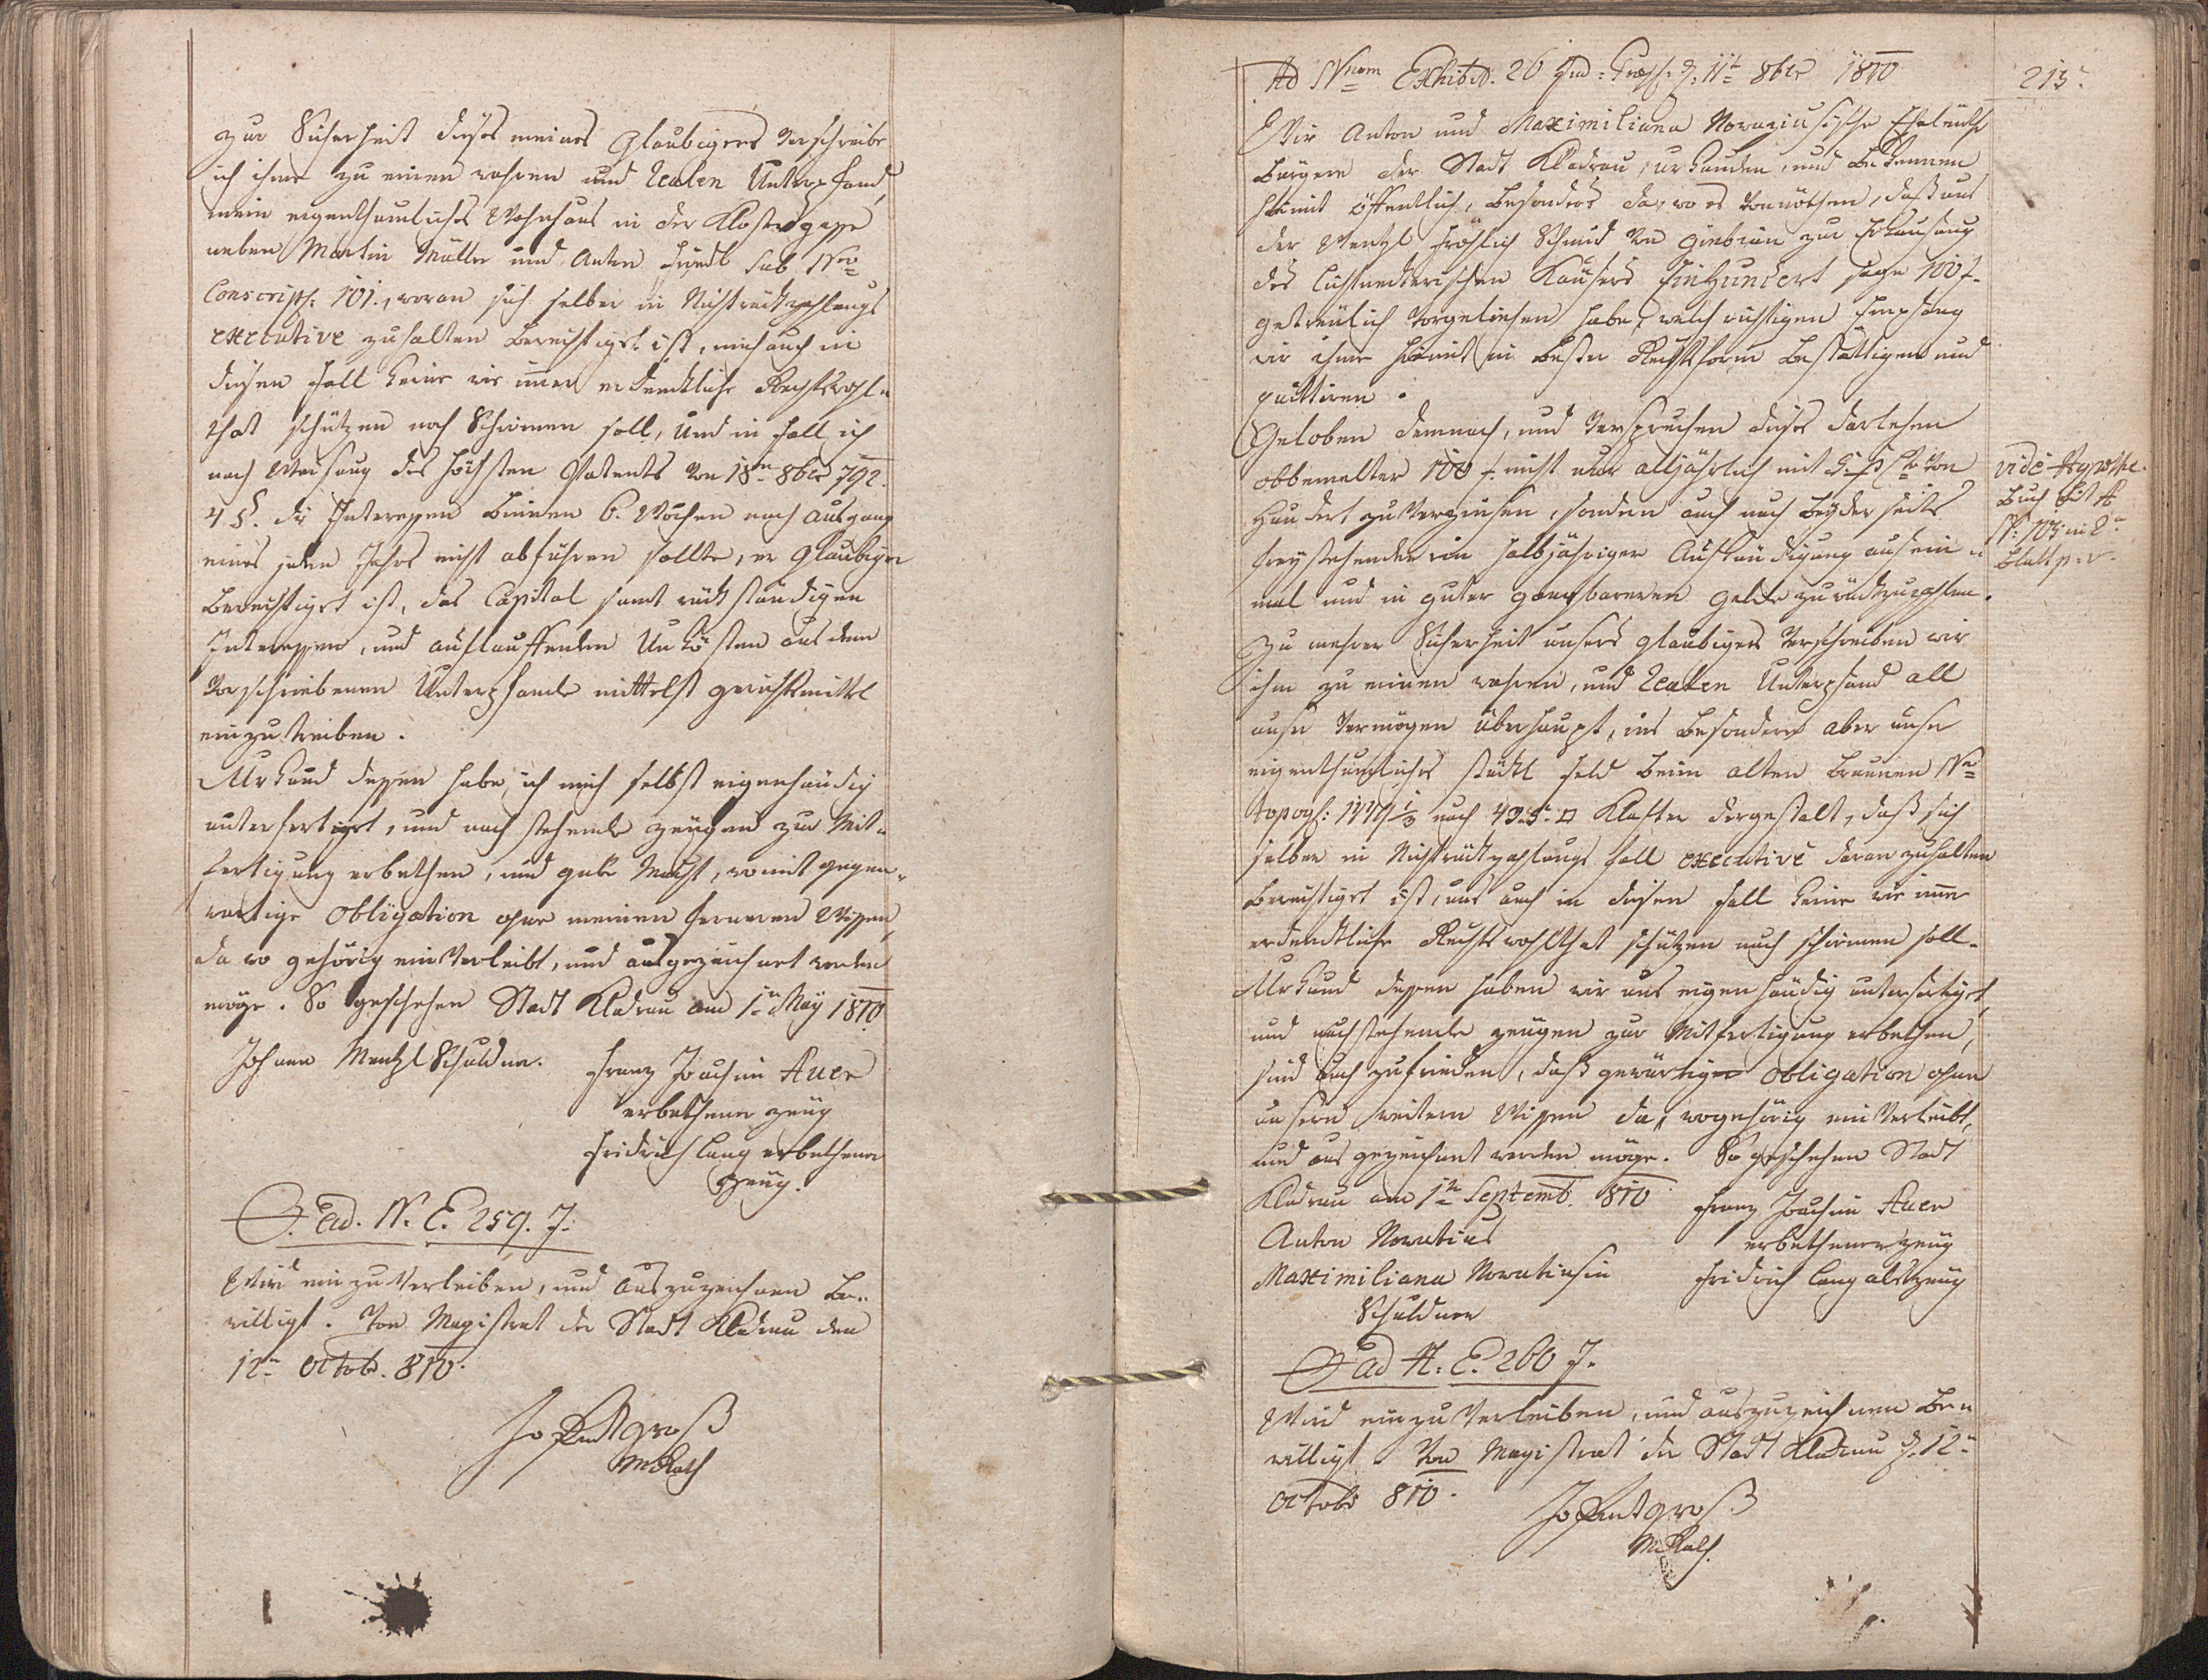 zur Sicherheit dieses meines Glaubigers verschreibe
ich ihme zu einen wahren und Realen Unterpfand,
mein eigenthumliches Wohnhaus in der Klostergasse
neben Martin Müller und Anton Friedl sub Nro
Conscript: 101., woran sich selber in Nichtrückzahlungs
executive zuhalten berechtiget ist, mich auch in
diesen Fall keine wie immer erdenkliche Rechtswohl„
that schützen noch Schirmen soll, Und in Fall ich
nach Weisung des höchsten Patents von 18n 8ber 792.
4 §. die Interessen binnen 6. Wochen nach Ausgang
eines jeden Jahrs nicht abführen sollte, er Glaubiger
berechtiget ist, das Capital samt rückständigen
Interessen, und auflauffenden Unkösten aus dem
Vorschriebenen Unterpfande mittelst gerichtsmittel
einzutreiben.
Urkund dessen habe ich mich selbst eigenhändig
unterfertiget, und nach stehende Zeugen zur Mit„
fertigung erbethen, und gebe Macht, womit gegen„
wartige Obligation ohne meinen ferneren Wissen,
da wo gehörig ein Verleibt, und ausgezeichnet werden
möge. So geschehen Stadt Kladrau am 1n May 1810
Johann Mentzl Schuldner. Franz Joachim Auer
erbethener Zeug
Fridrich Lang erbethener
Zeug.
ad. N. E. 259. J.
Wird ein zu Verleiben, und Auszuzeichnen be„
willigt. Von Magistrat der Stadt Kladrau den
12n Octob. 810.
groß
MRath
Ad Nrum Exhibit. 26 Jud: Præs: d. 11t 8ber 1810
213.
Wir Anton und Maximiliana Novaziusische Eheleüthe
Bürgern der Stadt Kladrau, urkunden, und bekennen
hiemit öffentlich, besonders da, wo es vonnöthen, daß uns
der Wentzl Fröhlich Schmid von zur Erkaufung
des Hauses Ein Hundert sage 100 f.
getreulich Vorgeliehen habe, welch richtigen Empfang
wir ihme hiemit in bester Rechtsform bestättigen und
quittiren.
Geloben demnach, und Versprechen dieses Darlehen
obbemelter 100 f. nicht nur alljährlich mit 5. p Cto von
Hundert zu Verzinsen, sondern auch nach beyder seits
freystehender halbjähriger Aufkündigung auf ein„
mal und in guter gangbareren Gelde zurückzuzahlen.
vide Hypothe.
Buch Lit A
N: 103 in 2n
Blatt p. v.
Zu mehrer Sicherheit unsers Glaubigers Verschreiben wir
ihm zu einen wahren, und Realen Unterpfand all
unser Vermögen überhaupt, ins besondere aber unser
eigenthumliches stückl Feld beim alten Brunnen Nro
topogh: nach □ Klafter dergestalt, daß sich
selber in Nichtrückzahlungs fall executive daran zuhalten
berechtiget ist, uns auch in diesen fall keine wie immer
erdenckliche Rechtswohlthat schützen noch schirmen soll.
Urkund dessen haben wir uns eigenhändig unterfertiget,
und nachstehende Zeugen zur Mitfertigung erbethen,
sind auch zufrieden, daß gewärtige Obligation ohne
unsern weitern Wissen da, wogehörig ein Verleibt,
und aus gezeichnet werden möge. So geschehen Stadt
Kladrau am 1tn Septemb. 810 Franz Joachim Auer
Anton Novatius erbethener Zeug
Maximiliana Novatiusin Fridrich Lang als Zeug
Schuldner
ad N. E. 260 J.
Wird ein zu Verleiben, und auszuzeichnen be„
willigt. Von Magistrat der Stadt Kladrau d. 12n
Octob 810.
groß
MRath.